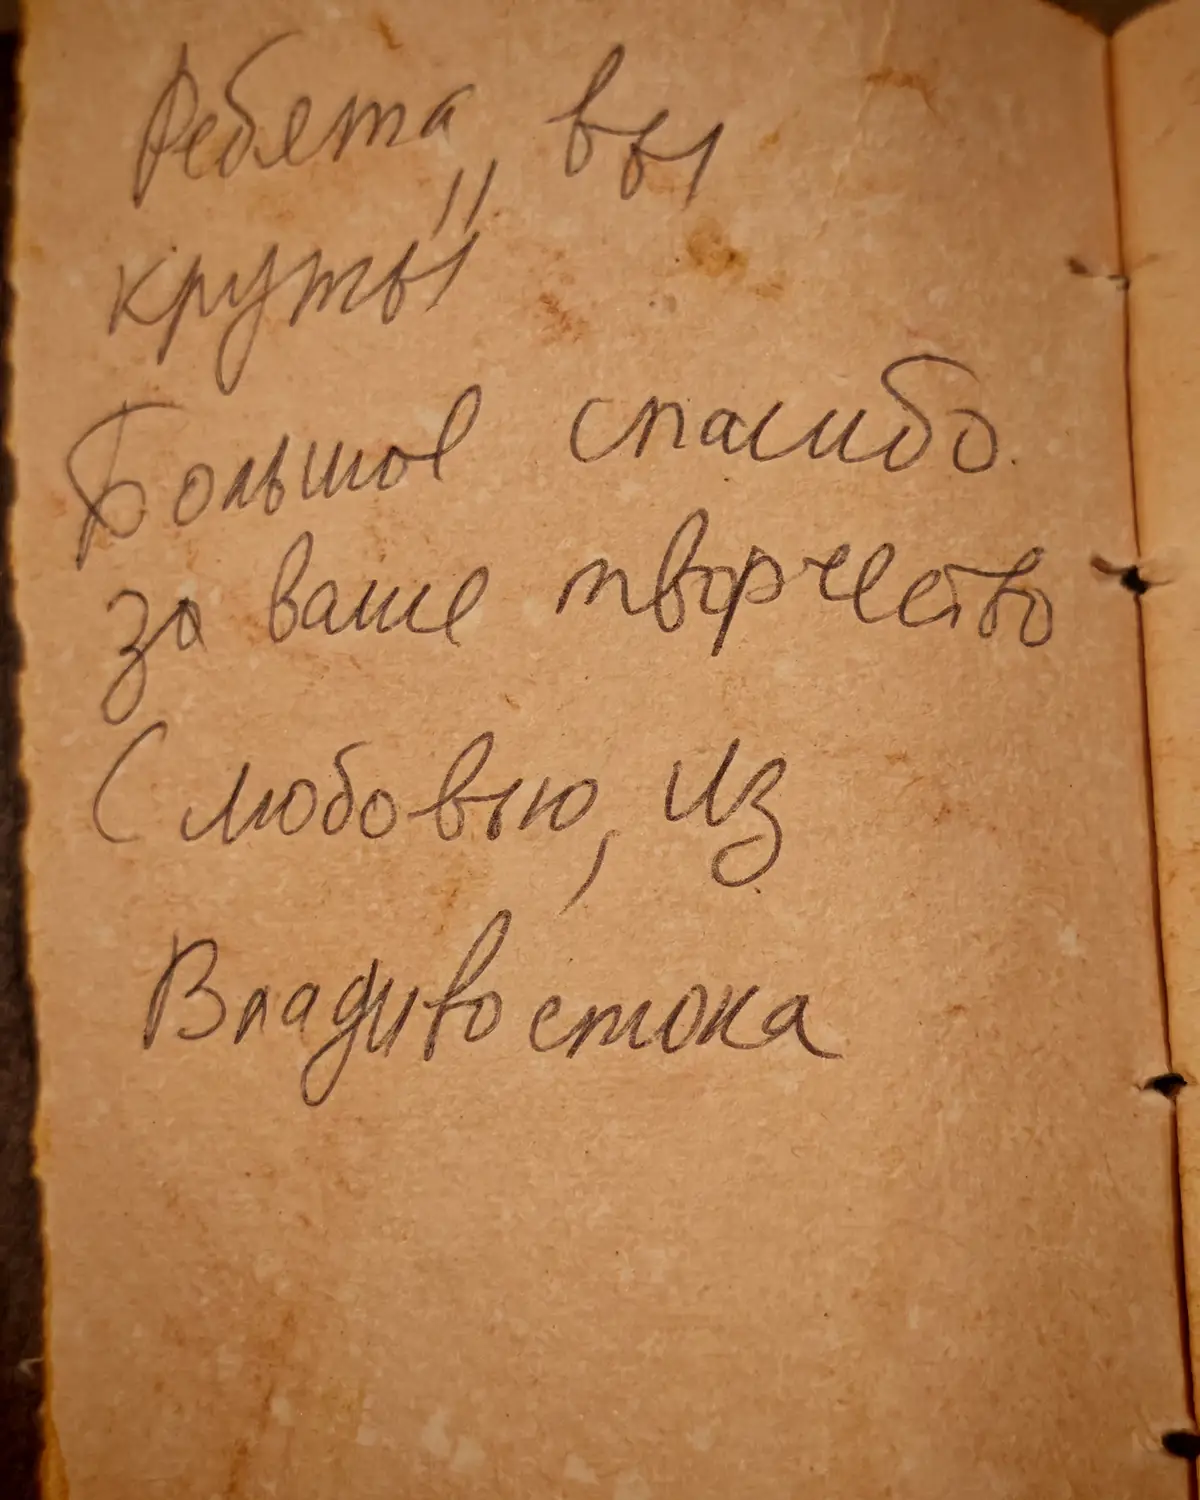 Ребята, вы
круты!!
Большое спасибо
за ваше творчество
С любовью, из
Владивостока